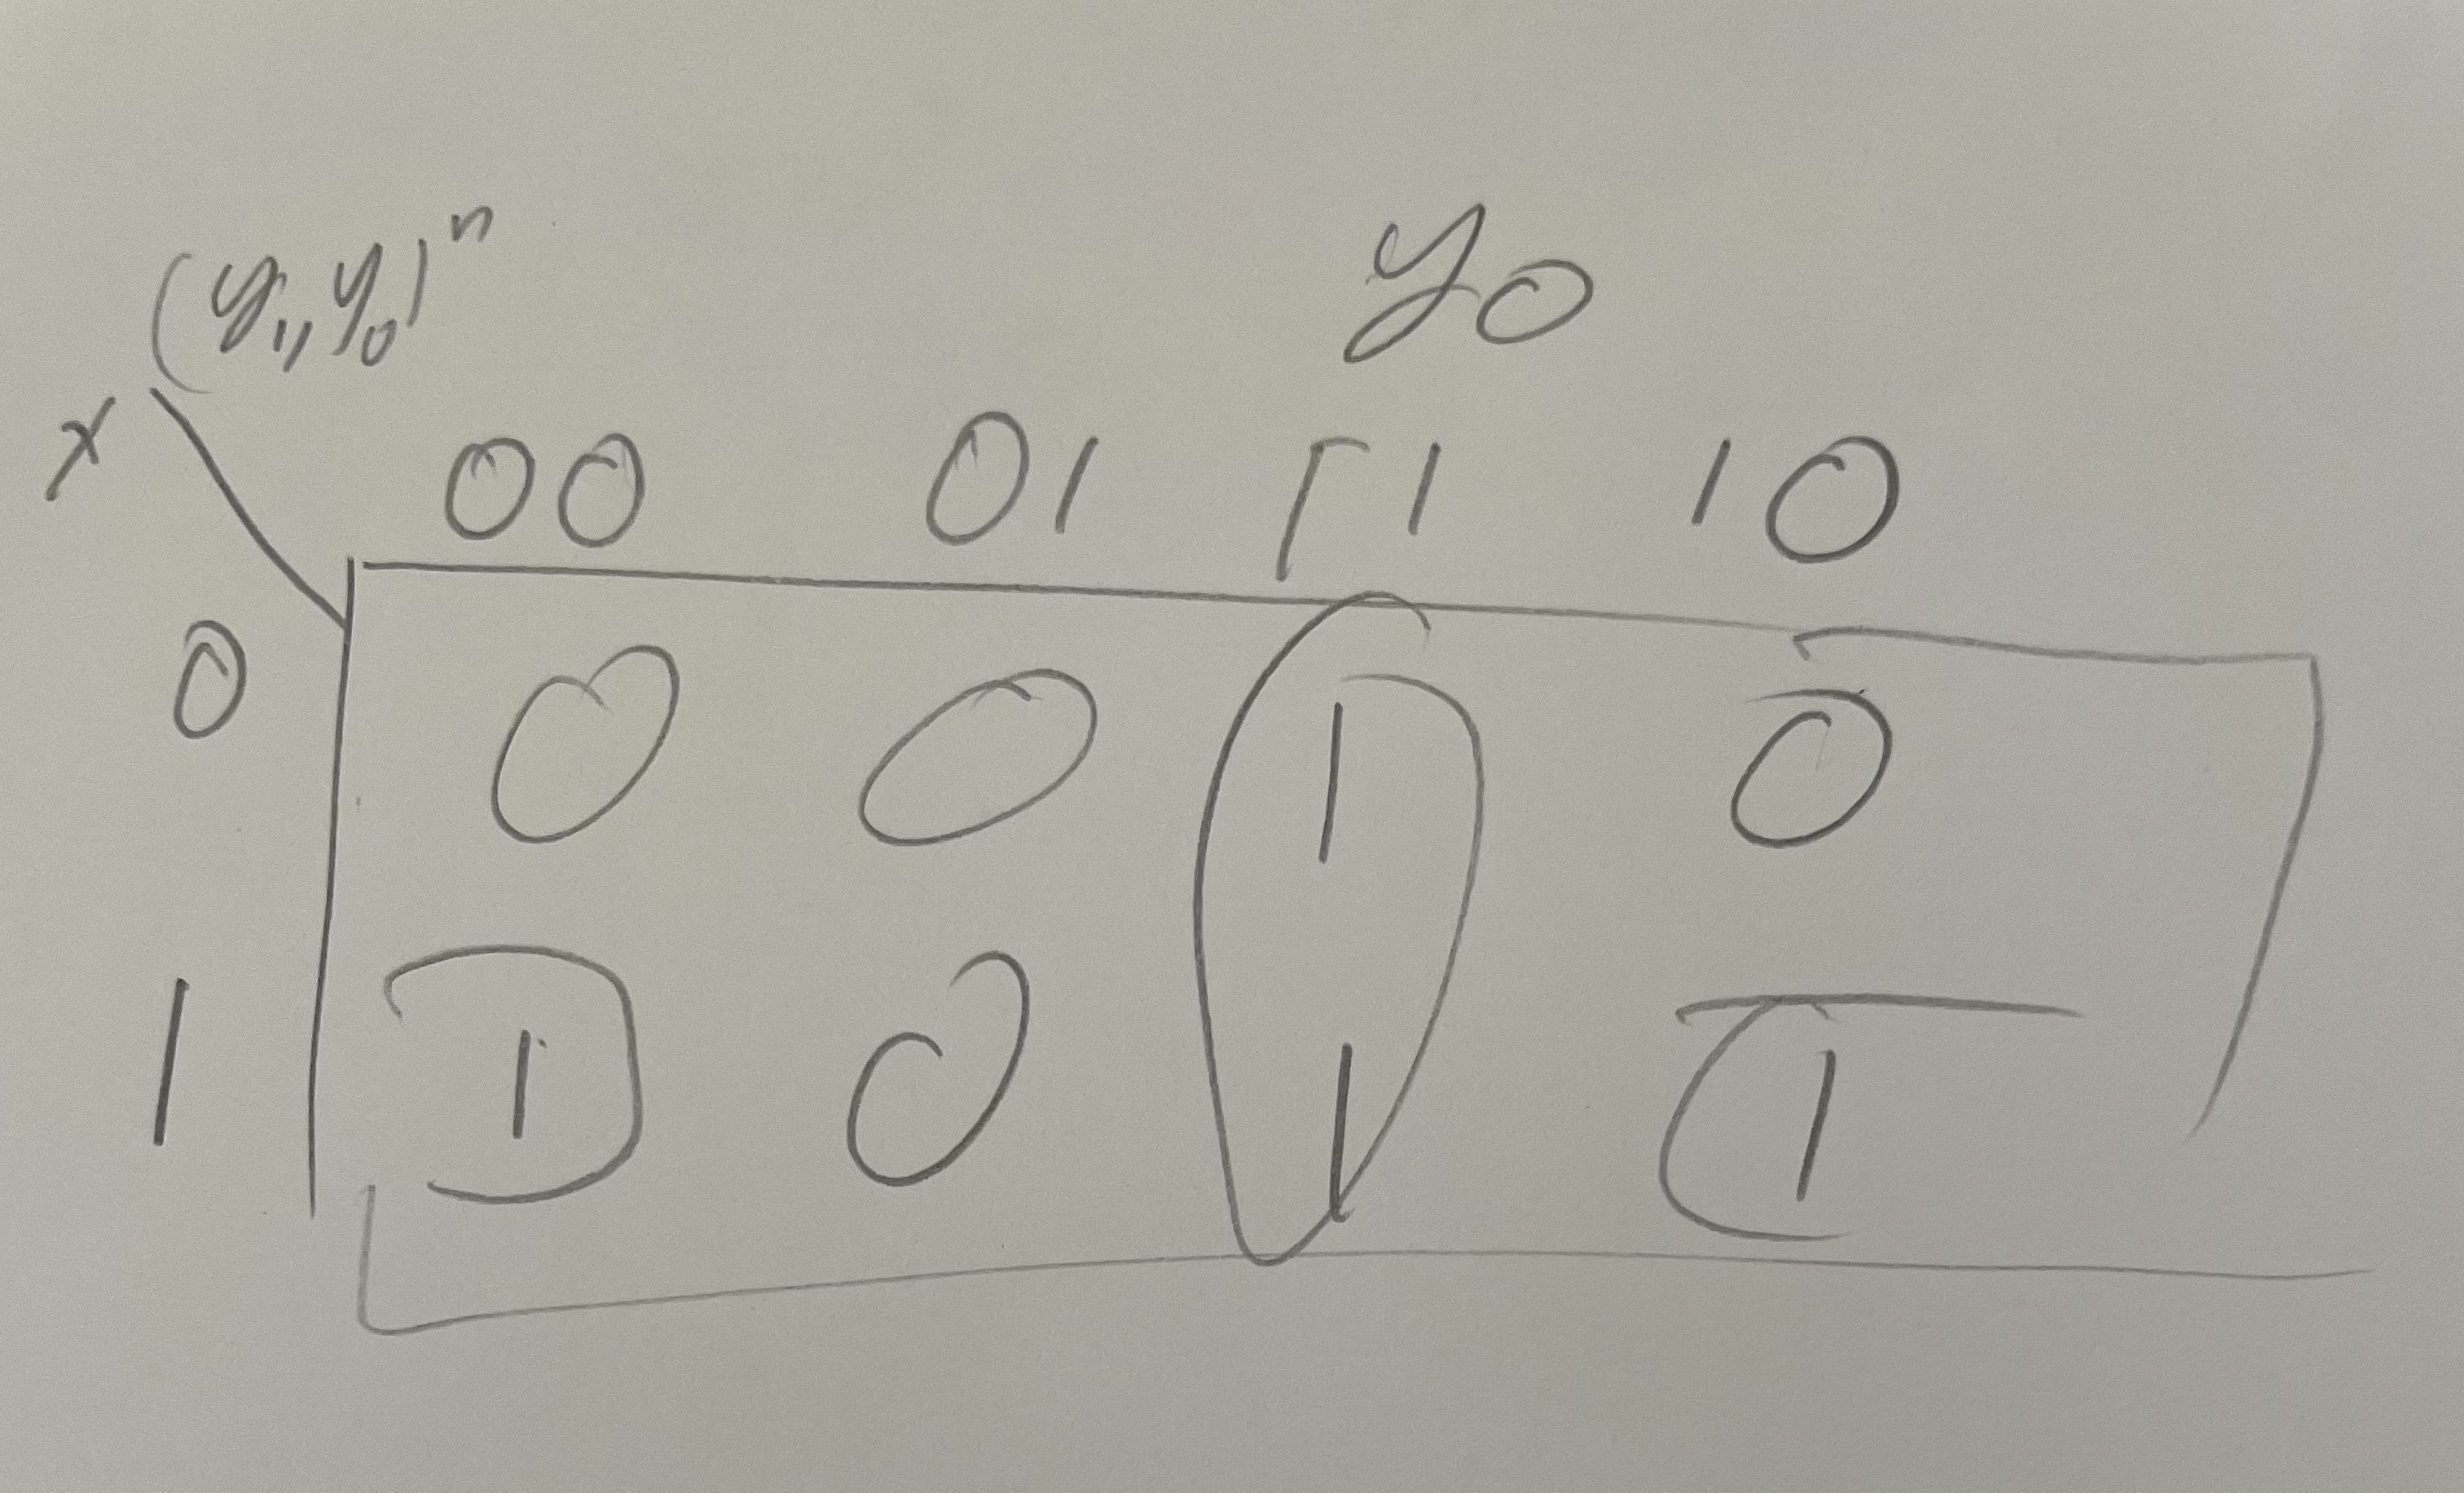 (y₁, y₀)ⁿ y0
x 00 01 11 10
0 0 0 1 0
1 1 0 1 1